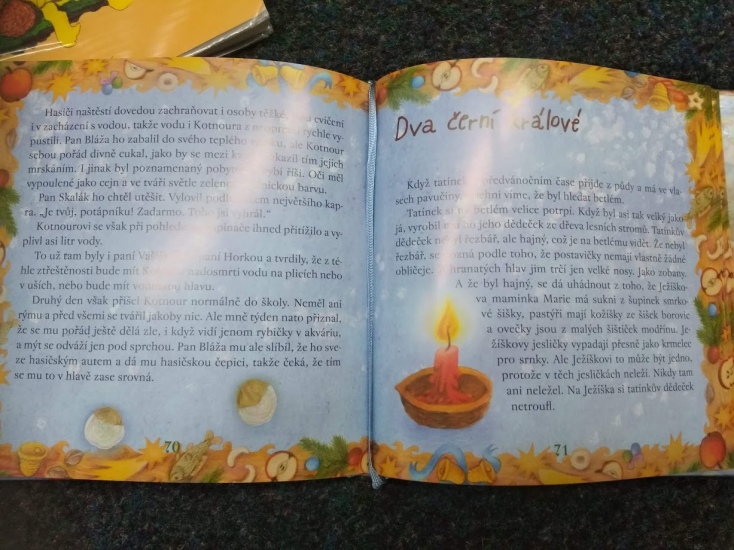 Hasiči naštěstí dovedou zachraňovat i osoby těžké, cvičení
i v zacházení s vodou, takže vodu i Kotnoura z rychle vy-
pustili. Pan Bláža ho zabalil do svého teplého ale Kotnour
sebou pořád divně cukal, jako by se mezi kazil tím jejich
mrskáním. I jinak byl poznamenaný říši. Oči měl
vypoulené jako cejn a ve tváři světle zelenou barvu.
Pan Skalák ho chtěl utěšit. Vylovil největšího kap-
ra. „Je tvůj, potápníku! Zadarmo.
Kotnourovi se však při pohledu ihned přitížilo a vy-
plivl asi litr vody.
To už tam byly i paní Horkou a tvrdily, že z té-
hle ztřeštěnosti bude mít nadosmrti vodu na plicích nebo
v uších, nebo bude mít hlavu.
Druhý den však přišel Kotnour normálně do školy. Neměl ani
rýmu a před všemi se tvářil jakoby nic. Ale mně týden nato přiznal,
že se mu pořád ještě dělá zle, i když vidí jenom rybičky v akváriu,
a mýt se odváží jen pod sprchou. Pan Bláža mu ale slíbil, že ho sve-
ze hasičským autem a dá mu hasičskou čepici, takže čeká, že tím
se mu to v hlavě zase srovná.
70
Dva černí králové
Když tatínek předvánočním čase přijde z půdy a má ve vla-
sech pavučiny, všichni víme, že byl hledat betlém.
Tatínek si na betlém velice potrpí. Když byl asi tak velký jako
já, vyrobil ho jeho dědeček ze dřeva lesních stromů. Tatínkův
dědeček nebyl řezbář, ale hajný, což je na betlému vidět. Že nebyl
řezbář, se pozná podle toho, že postavičky nemají vlastně žádné
obličeje. hranatých hlav jim trčí jen velké nosy. Jako zobany.
A že byl hajný, se dá uhádnout z toho, že Ježíško-
va maminka Marie má sukni z šupinek smrko-
vé šišky, pastýři mají kožíšky ze šišek borovic
a ovečky jsou z malých šištiček modřínu. Je-
žíškovy jesličky vypadají přesně jako krmelec
pro srnky. Ale Ježíškovi to může být jedno,
protože v těch jesličkách neleží. Nikdy tam
ani neležel. Na Ježíška si tatínkův dědeček
netroufl.
71